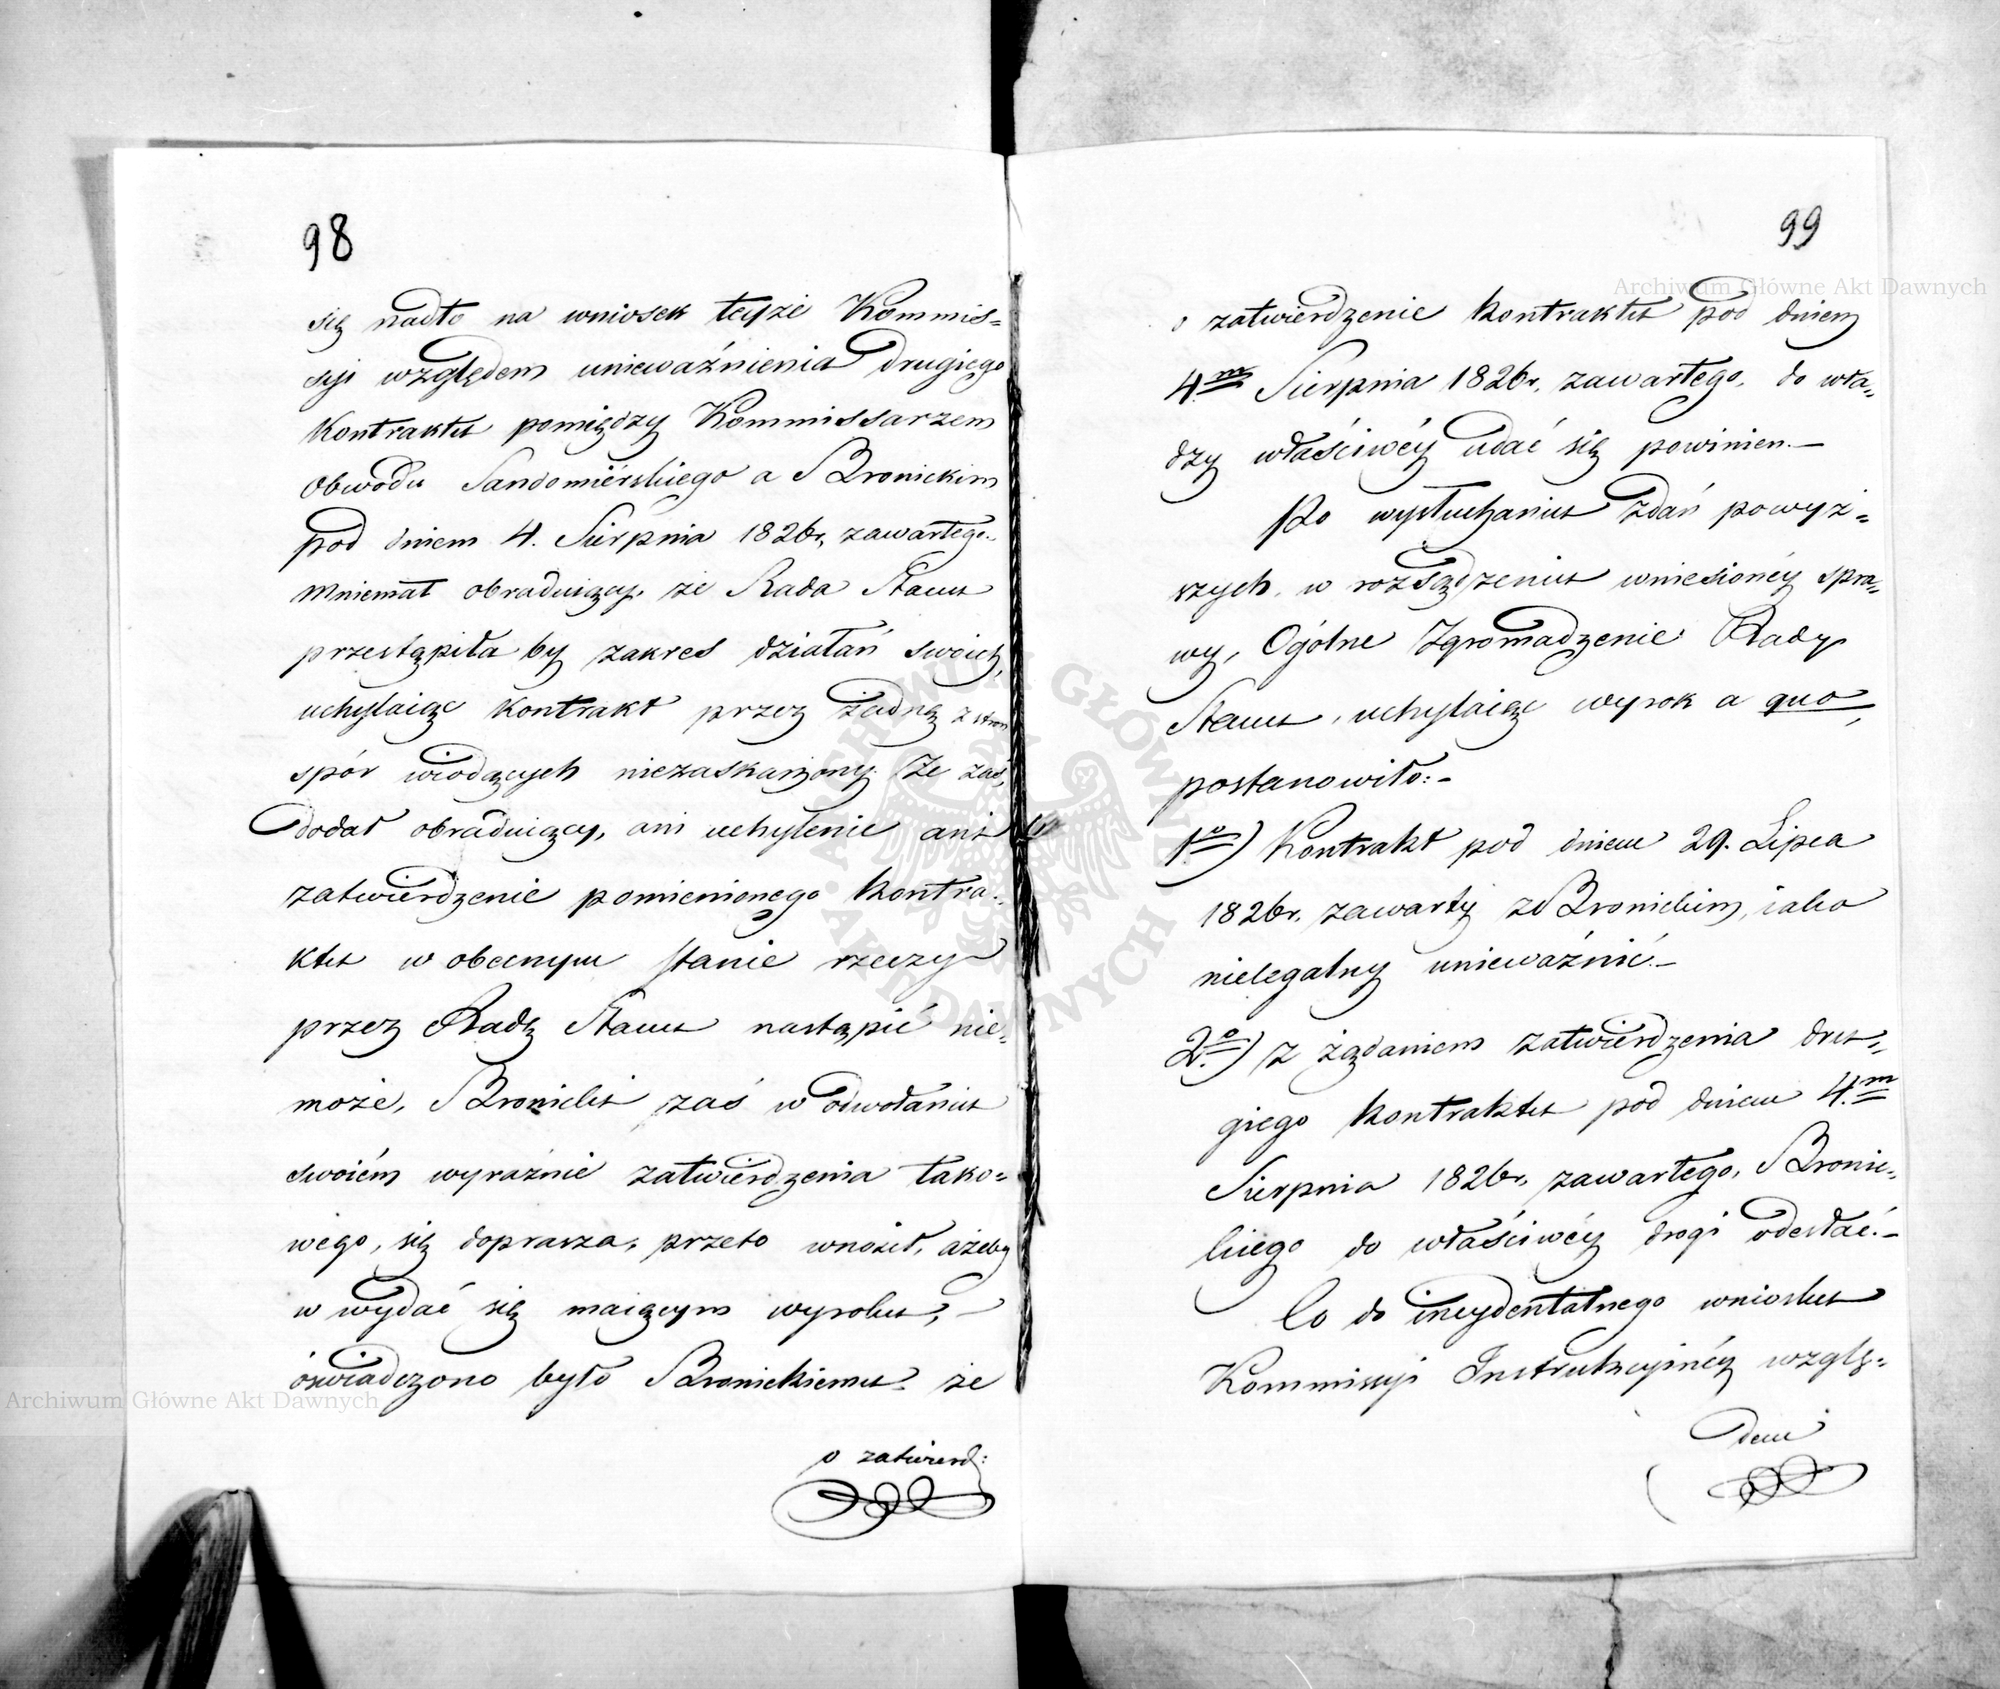 98
się nadto na wniosek teyże Kommis=
syi względem unieważnienia drugiego
Kontraktu pomiędzy Kommissarzem
Obwodu Sandomiérskiego a Bronickim
pod dniem 4. Sierpnia 1826r. zawartego.
Mniemał obraduiący, że Rada Stanu
przestąpiła by zakres działań swoich,
uchylaiąc Kontrakt przez żadną z stron
spór wiodących niezaskarżony. Że zaś,
dodał obraduiący, ani uchylenie ani
zatwierdzenie pomienionego Kontra=
ktu w obecnym stanie rzeczy
przez Radę Stanu nastąpić nie=
może, Bronicki zaś w odwołaniu
swoiém wyraźnie zatwierdzenia tako=
wego, się doprasza, przeto wnosił, ażeby
w wydać się maiącym wyroku,
oświadczono było Bronickiemu, że
o zatwierd:
99
o zatwierdzenie Kontraktu pod dniem
4m Sierpnia 1826r. zawartego, do wła=
dzy właściwéy udać się powinien.—
Po wysłuchaniu zdań powyż=
szych, w rozsądzeniu wniesionéy spra=
wy, Ogólne Zgromadzenie Rady
Stanu, uchylaiąc wyrok a quo,
postanowiło:-
1o) Kontrakt pod dniem 29. Lipca
1826r. zawarty z Bronickim, iako
nielegalny unieważnić.—
2o) z żądaniem zatwierdzenia dru=
giego Kontraktu pod dniem 4.m
Sierpnia 1826r. zawartego, Bronic=
kiego do właściwéy drogi odesłać.—
Co do incydentalnego wniosku
Kommissyi Instrukcyinéy wzglę=
dem
Archiwum Główne Akt Dawnych
Archiwum Główne Akt Dawnych
ARCHIWUM GŁÓWNE AKT DAWNYCH